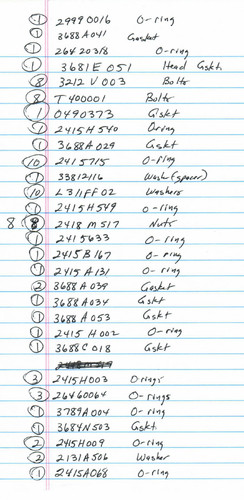 1 29990016 O-ring
1 3688A041 Gasket
1 26420318 O-ring
1 3681E051 Head Gskt.
8 3212V003 Bolts
8 T400001 Bolts
1 0490373 Gskt
1 2415H540 Oring
1 3688A029 Gskt
10 2415715 O-ring
1 33812116 Washer (spacer)
10 L311FF02 Washers
1 2415H549 O-ring
8 8 2418M517 Nuts
1 2415633 O-ring
1 2415B167 O-ring
1 2415A131 O-ring
2 3688A039 Gasket
1 3688A034 Gskt
1 3688A053 Gskt
1 2415H002 O-ring
1 3688C018 Gskt
3 2415H003 Orings
3 26460064 O-rings
1 3789A004 O-ring
1 3684N503 Gskt.
2 2415H009 O-ring
2 2131A506 Washer
1 2415A068 O-ring